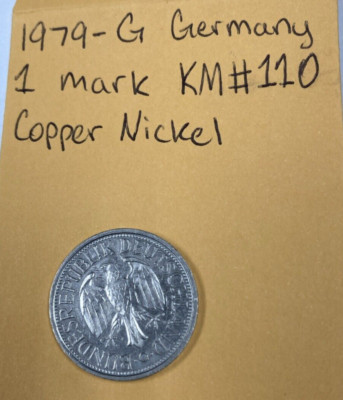 1979-G Germany
1 mark KM#110
Copper Nickel
BUNDESREPUBLIK DEUTSCHLAND